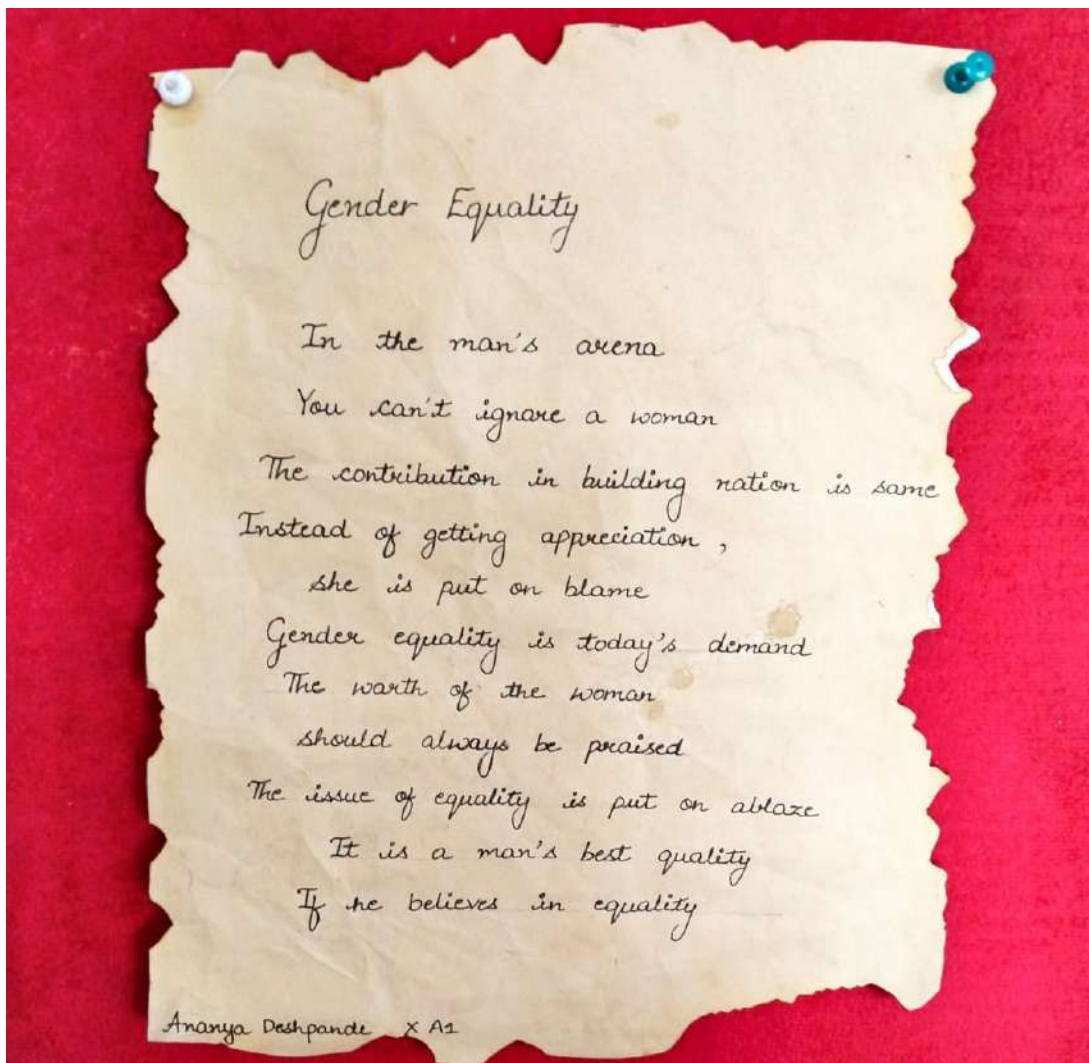 Gender Equality
In the man's arena
You can't ignore a woman
The contribution in building nation is same
Instead of getting appreciation ,
she is put on blame
Gender equality is today's demand
The worth of the woman
should always be praised
The issue of equality is put on ablaze
It is a man's best quality
If he believes in equality
Ananya Deshpande X A1